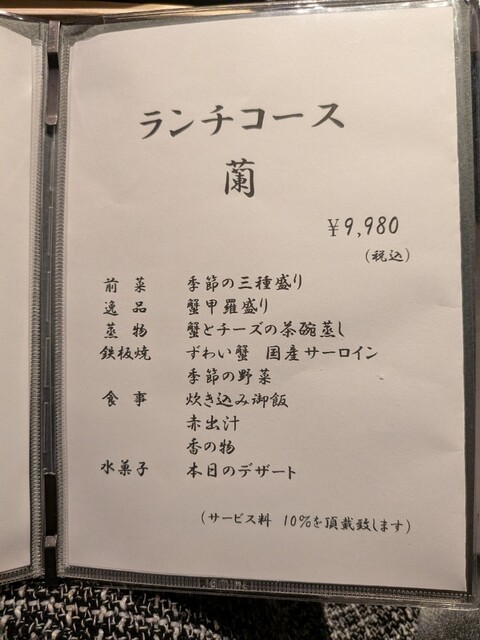 ランチコース
蘭
￥9,980
(税込)
前 菜 季節の三種盛り
逸 品 蟹甲羅盛り
蒸 物 蟹とチーズの茶碗蒸し
鉄板焼 ずわい蟹 国産サーロイン
季節の野菜
食 事 炊き込み御飯
赤出汁
香の物
水菓子 本日のデザート
(サービス料 10%を頂戴致します)